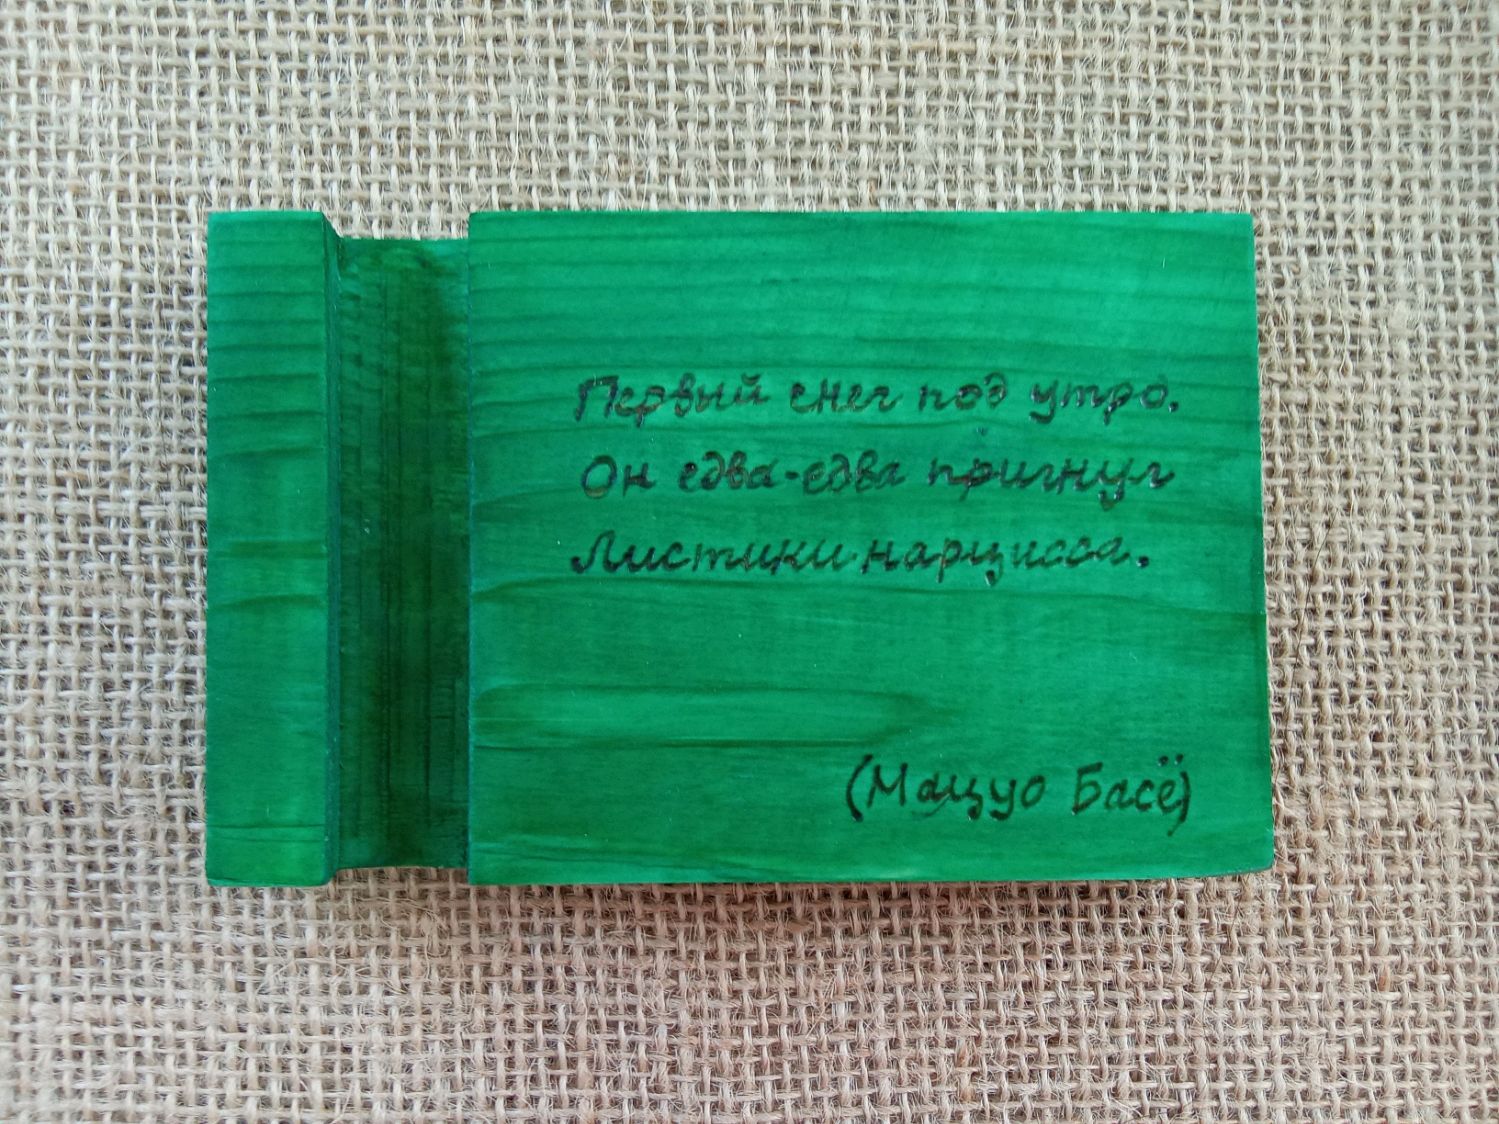 Первый снег под утро.
Он едва-едва пригнул
Листики нарцисса.
(Мацуо Басё)